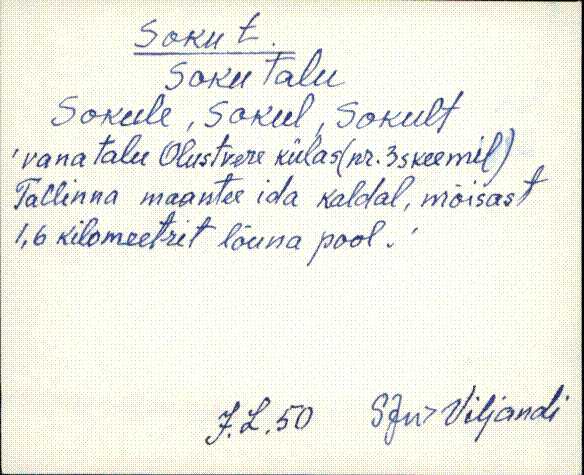 Soku t.
Soku talu
Sokule, Sokul, Sokult
'vana talu Olustvere külas (nr. 3 skeemil)
Tallinna maantee ida kaldal, mõisast
1,6 kilomeetrit lõuna pool.'
J.L.50 SJn> Viljandi